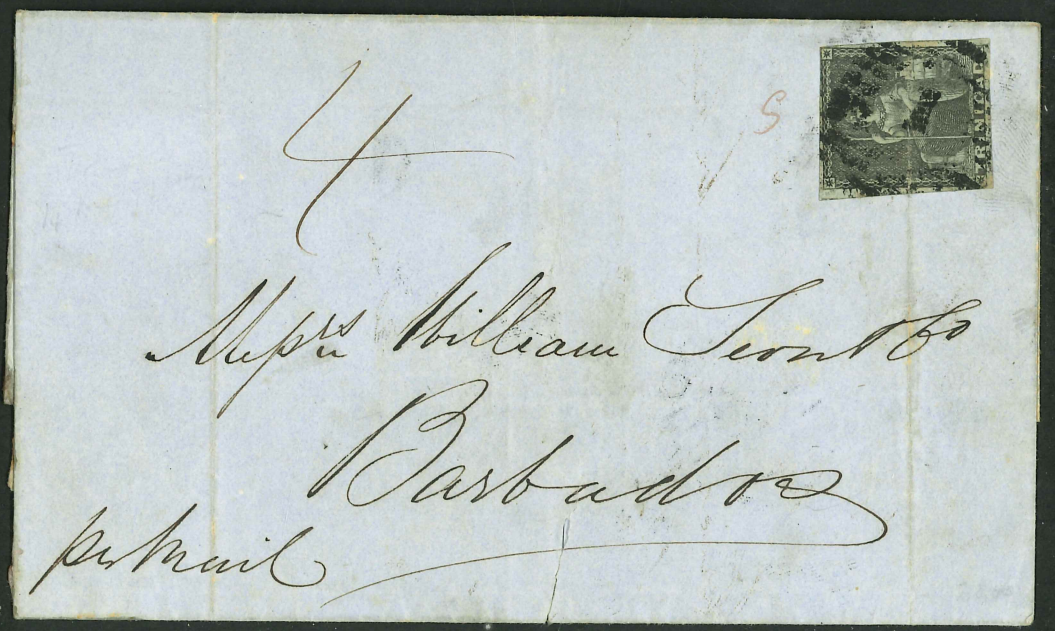 4
TRINIDAD
Messrs William Leon & Co
Barbados
per Mail